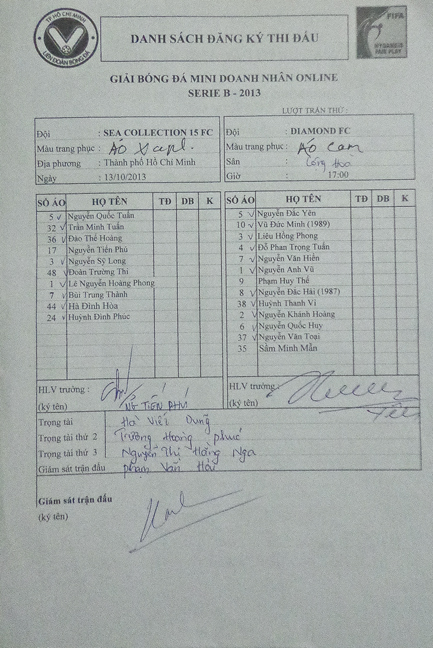 TP HỒ CHÍ MINH
LIÊN ĐOÀN BÓNG ĐÁ
DANH SÁCH ĐĂNG KÝ THI ĐẤU
FIFA
FAIR PLAY
GIẢI BÓNG ĐÁ MINI DOANH NHÂN ONLINE
SERIE B - 2013
LƯỢT TRẬN THỨ :
Đội : SEA COLLECTION 15 FC
Màu trang phục : Áo
Địa phương : Thành phố Hồ Chí Minh
Ngày : 13/10/2013
Đội : DIAMOND FC
Màu trang phục : Áo Cam
Sân : Cộng Hòa
Giờ : 17:00
SỐ ÁO HỌ TÊN TĐ DB K
5 ✓ Nguyễn Quốc Tuấn
32 ✓ Trần Minh Tuấn
36 ✓ Đào Thế Hoàng
17 Nguyễn Tiến Phú
3 ✓ Nguyễn Sỹ Long
48 ✓ Đoàn Trường Thi
1 ✓ Lê Nguyễn Hoàng Phong
7 ✓ Bùi Trung Thành
44 ✓ Hà Đình Hòa
24 ✓ Huỳnh Đình Phúc
SỐ ÁO HỌ TÊN TĐ DB K
5 ✓ Nguyễn Đắc Yên
10 ✓ Vũ Đức Minh (1989)
3 ✓ Liêu Hồng Phong
4 ✓ Đỗ Phan Trọng Tuấn
7 ✓ Nguyễn Văn Hiền
1 ✓ Nguyễn Anh Vũ
9 Phạm Huy Thế
8 ✓ Nguyễn Đắc Hải (1987)
38 ✓ Huỳnh Thanh Vi
2 ✓ Nguyễn Khánh Hoàng
6 ✓ Nguyễn Quốc Huy
37 ✓ Nguyễn Văn Toại
35 Sầm Minh Mẫn
HLV trưởng :
(ký tên) NG TIẾN PHÚ
HLV trưởng :
(ký tên)
Trọng tài Hồ Viết Dũng
Trọng tài thứ 2 Trương Hoàng Phúc
Trọng tài thứ 3 Nguyễn Thị Hồng Nga
Giám sát trận đấu Phạm Văn Hòa
Giám sát trận đấu
(ký tên)